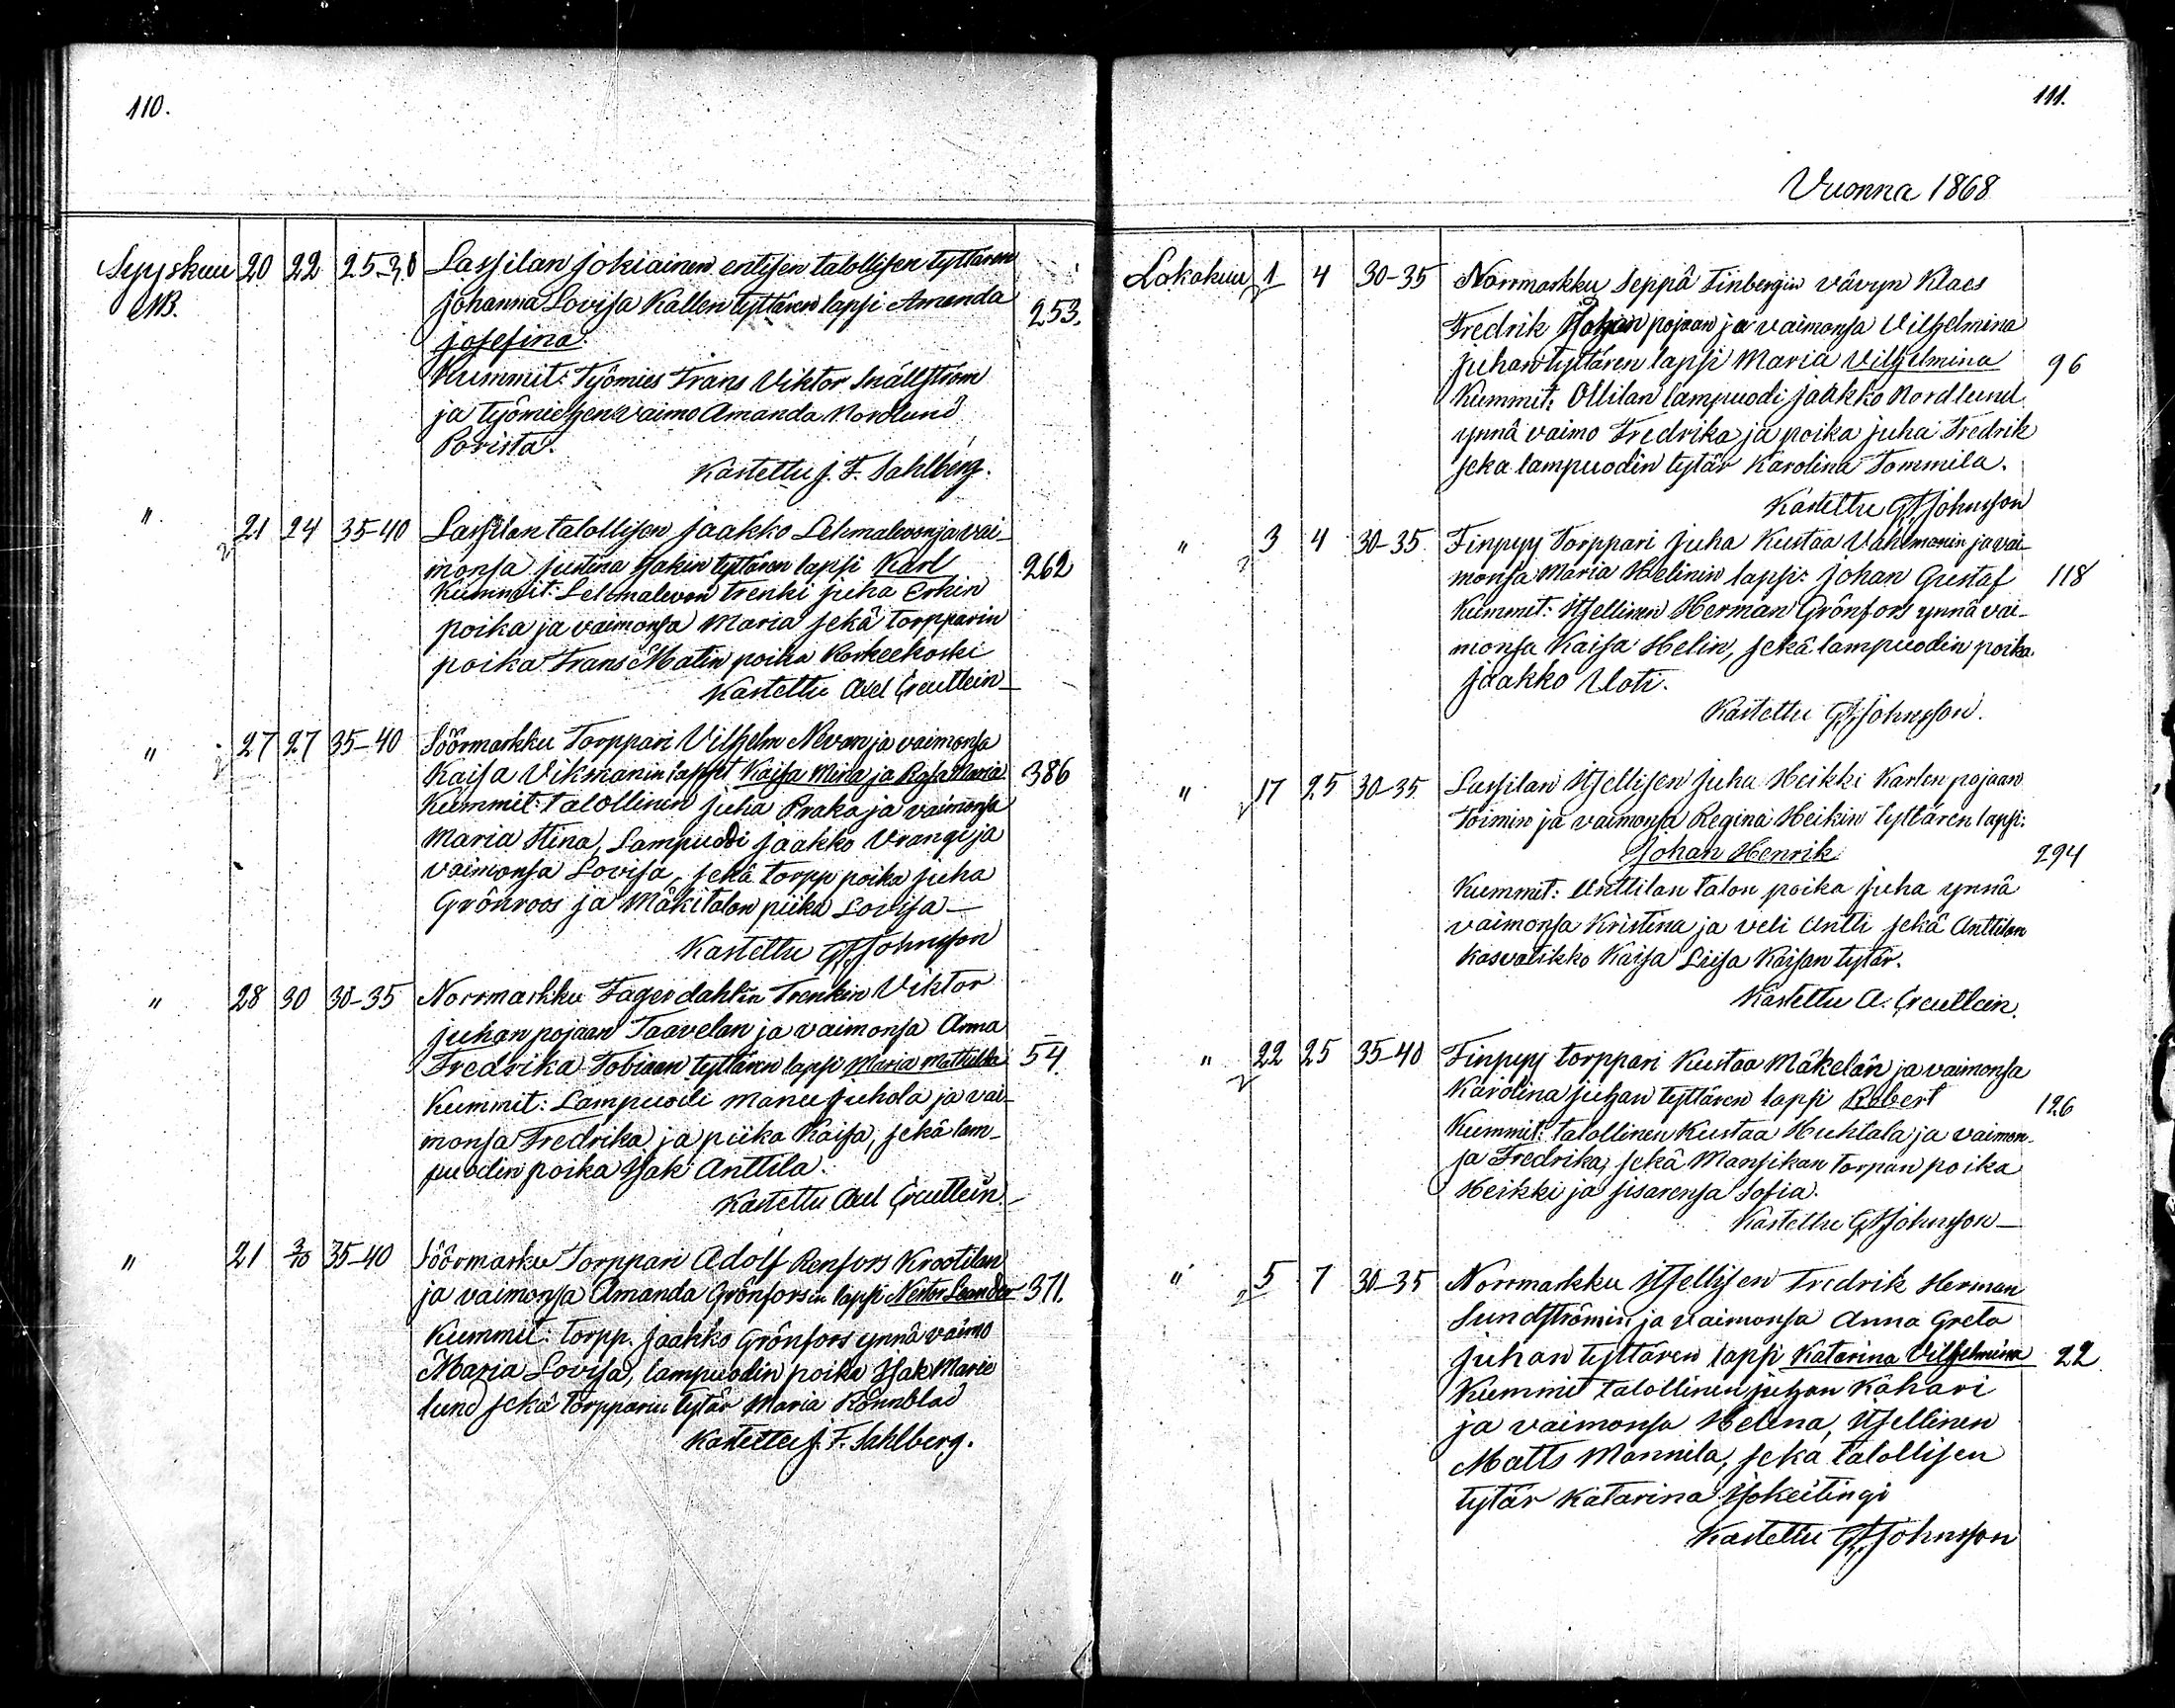 110.
Syyskuu 20 22 25-30 Lassilan Jokiainen entisen talollisen tyttären
NB. Johanna Lovisa Kallen tyttären lapsi Amanda 253.
Josefina.
Kummit: Työmies Frans Viktor Snällström
ja työmiehen vaimo Amanda Nordlund
Porista.
Kastettu J. F. Sahlberg.
" 21 24 35-40 Lassilan talollisen Jaakko Lehmalevon ja vai-
monsa Justina Isakin tyttären lapsi Karl 262
Kummit: Lehmalevon trenki Juha Erkin
poika ja vaimonsa Maria sekä torpparin
poika Frans Matin poika Korkeekoski
Kastettu Axel Creutlein
" 27 27 35-40 Söörmarkku Torppari Vilhelm Nevan ja vaimonsa
Kaisa Vikmanin lapset Kaisa Mina ja Rosa Maria 386
Kummit: talollinen Juha Praka ja vaimonsa
Maria Stina, Lampuodi Jaakko Vrangi ja
vaimonsa Lovisa, sekä torpp poika Juha
Grönroos ja Mäkitalon piika Lovisa
Kastettu G F Johnsson
" 28 30 30-35 Norrmarkku Fagerdahlin Trenkin Viktor
Juhan pojaan Taavelan ja vaimonsa Anna
Fredrika Tobiaan tyttären lapsi Maria Mathilda 54.
Kummit: Lampuodi Manu Juhola ja vai-
monsa Fredrika ja piika Kaisa, sekä lam-
puodin poika Isak Anttila.
Kastettu Axel Creutlein.
" 21 3/10 35-40 Söörmarku Torppari Adolf Renfors Krootilan
ja vaimonsa Amanda Grönforsin lapsi Nestor Leander 371.
Kummit: torpp. Jaakko Grönfors ynnä vaimo
Maria Lovisa, lampuodin poika Isak Marie
lund sekä torpparin tytär Maria Rönnblad
Kastettu J. F. Sahlberg.
111.
Vuonna 1868
Lokakuu 1 4 30-35 Norrmarkku Seppä Finbergin vävyn Klaes
Fredrik Johan pojaan ja vaimonsa Vilhelmina
Juhan tyttären lapsi Maria Vilhelmina 96
Kummit: Ollilan lampuodi Jaakko Nordlund
ynnä vaimo Fredrika ja poika Juha Fredrik
seka lampuodin tytär Karolina Tommila.
Kastettu G F Johnsson
" 3 4 30-35 Finpyy Torppari Juha Kustaa Vahlmanin ja vai-
monsa Maria Helinin lapsi: Johan Gustaf 118
Kummit: Itsellinen Herman Grönfors ynnä vai-
monsa Kaisa Helin, sekä lampuodin poika
Jaakko Uoti.
Kastettu G F Johnsson.
" 17 25 30-35 Lassilan Itsellisen Juha Heikki Karlen pojaan
Toimin ja vaimonsa Regina Heikin tyttären lapsi:
Johan Henrik 294
Kummit: Anttilan talon poika Juha ynnä
vaimonsa Kristina ja veli Antti sekä Anttilan
kasvatikko Kaisa Liisa Kaisan tytär.
Kastettu A. Creutlein.
" 22 25 35-40 Finpyy torppari Kustaa Mäkelän ja vaimonsa
Karolina Juhan tyttären lapsi Robert 126
Kummit: talollinen Kustaa Huhtala ja vaimon-
sa Fredrika, sekä Mansikan torpan poika
Heikki ja sisarensa Sofia.
Kastettu G F Johnsson
" 5 7 30-35 Norrmarkku Itsellisen Fredrik Herman
Sundströmin ja vaimonsa Anna Greta
Juhan tyttären lapsi Katarina Vilhelmina 22
Kummit talollinen Juhan Kahari
ja vaimonsa Helena, Itsellinen
Matts Mannila, seka talollisen
tytär Katarina Isokeitingi
Kastettu G F Johnsson